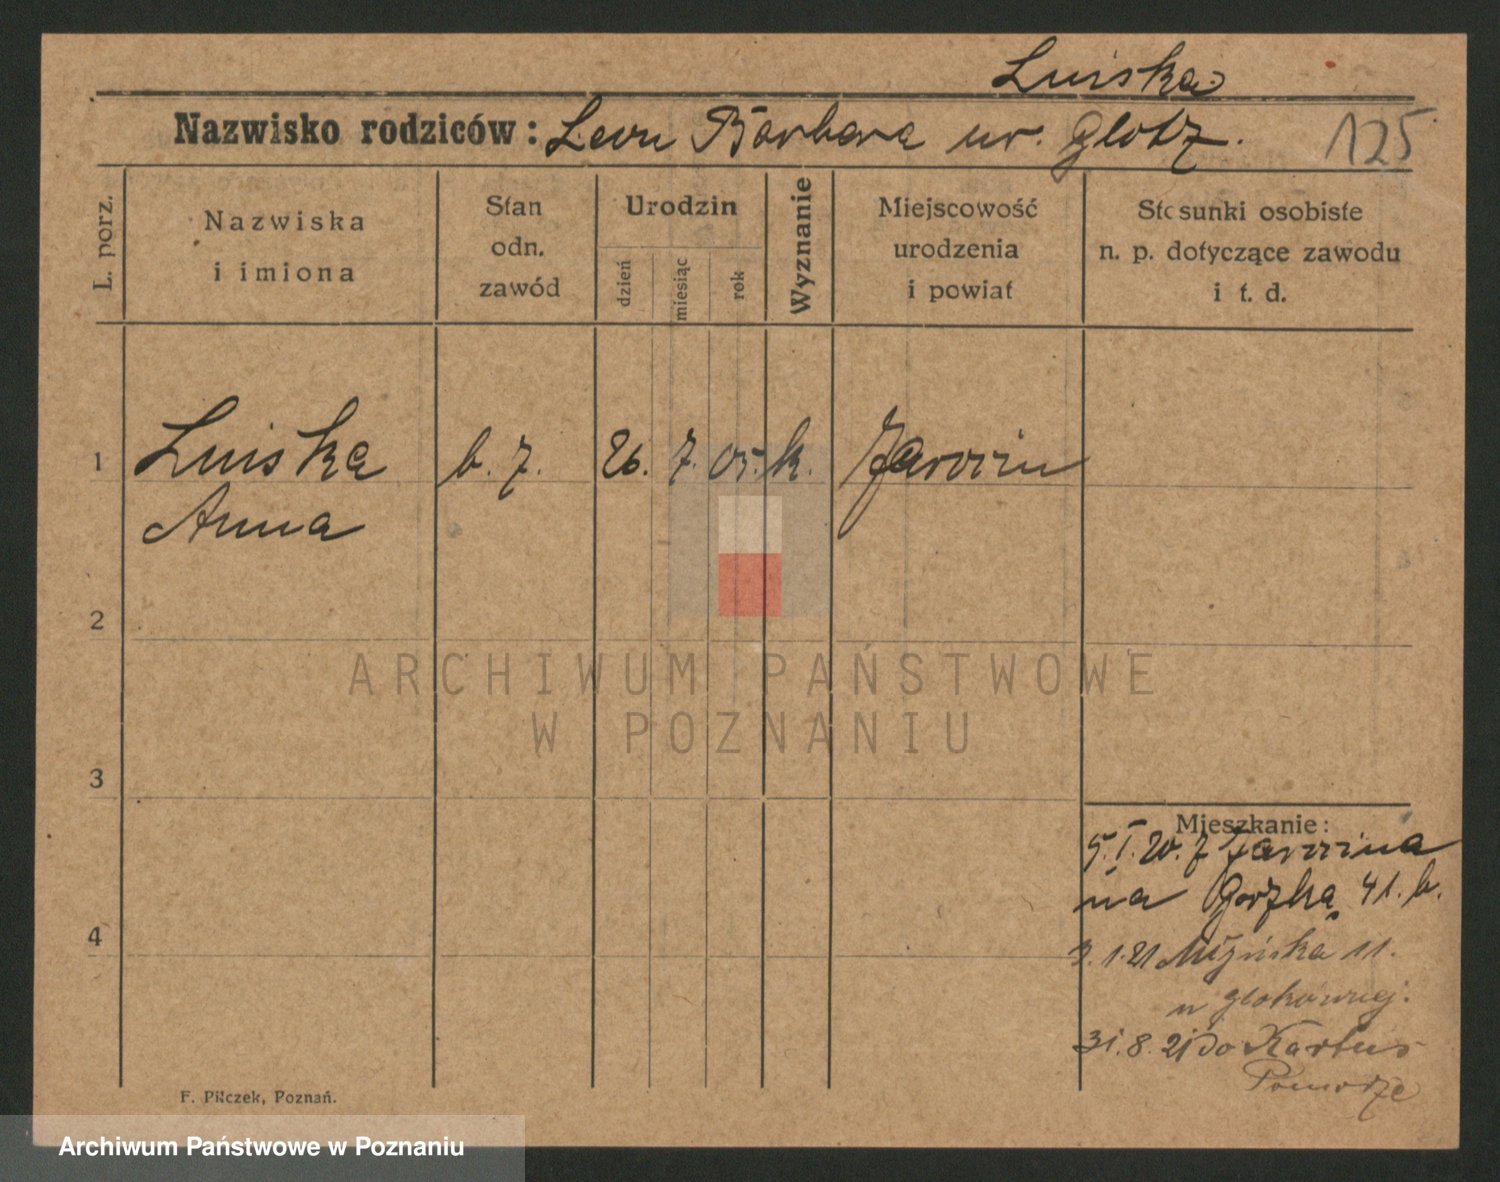 Luiska
Nazwisko rodziców: Leon Barbara ur. Glotz.
125
L. porz.
Nazwiska
i imiona
Stan
odn.
zawód
Urodzin
dzień
miesiąc
rok
Wyznanie
Miejscowość
urodzenia
i powiat
Stosunki osobiste
n. p. dotyczące zawodu
i t. d.
1
Luiska
Anna
b. z.
26. 7. 05. k.
Jarocin
2
ARCHIWUM PAŃSTWOWE
W POZNANIU
3
Mieszkanie:
5. I. 20. z Jarocina
na Gorzką 41. b.
4
3.1.21 11.
u
31.8.21 do Kartus
Pomorze
F. Pilczek, Poznań.
Archiwum Państwowe w Poznaniu